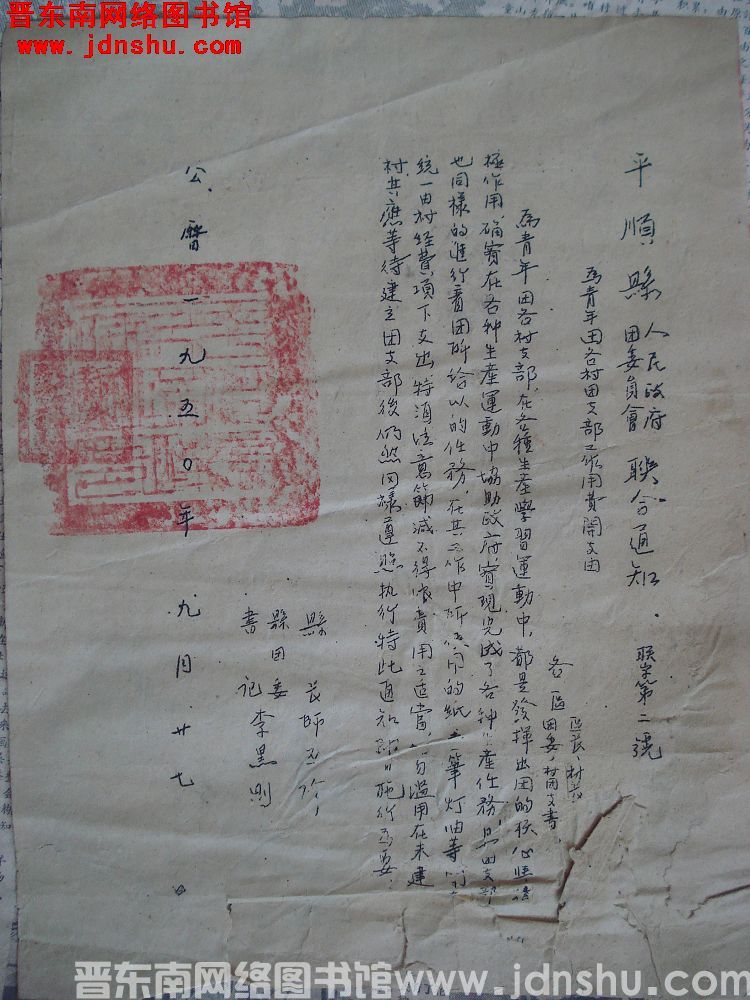 晋东南网络图书馆
www.jdnshu.com
平順縣人民政府團委員會聯合通知 聯字第二號
為青年团各村团支部工作用費開支由
各區區長、村長
团委、村团支書、
為青年团各村支部，在各種生產學習運動中，都是發揮出团的核心
極作用，确實在各种生産運動中協助政府，實現完成了各种產任務，团支部
也同樣的進行着团所给以的任務，在其工作中所使用的紙筆灯油等
統一由村经費項下支出，特須注意節減不得浪費用之适當，勿濫用在未建
村其應等待建立团支部後仍然同樣遵照执行特此通知施行為要．
縣長師
縣团委
書記李黑則
公曆一九五〇年九月廿七日
晋东南网络图书馆 www.jdnshu.com